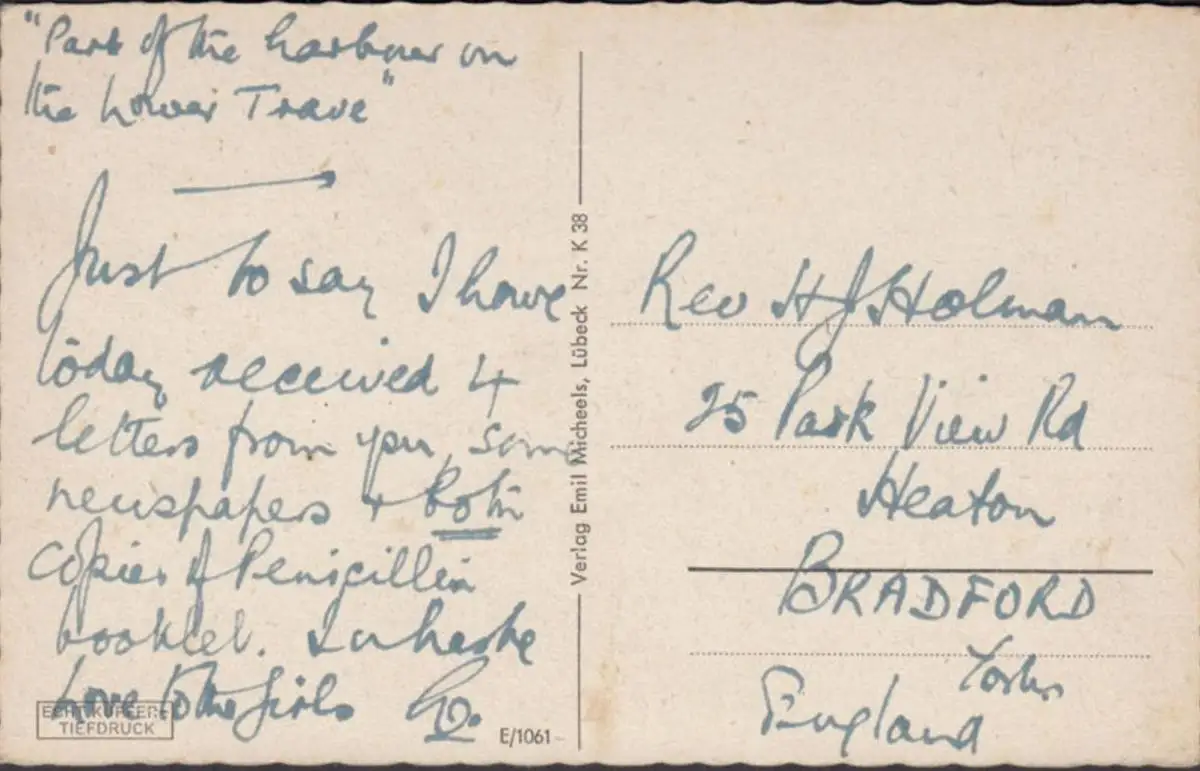 "Part of the harbour on
the Lower Trave"
Just to say I have
today received 4
letters from you, some
newspapers + both
copies of Penicillin
booklet. In haste
Love to the girls
ECHT KUPFER-
TIEFDRUCK
E/1061
Verlag Emil Micheels, Lübeck Nr. K 38
Rev H J Holman
25 Park View Rd
Heaton
BRADFORD
Yorks
England